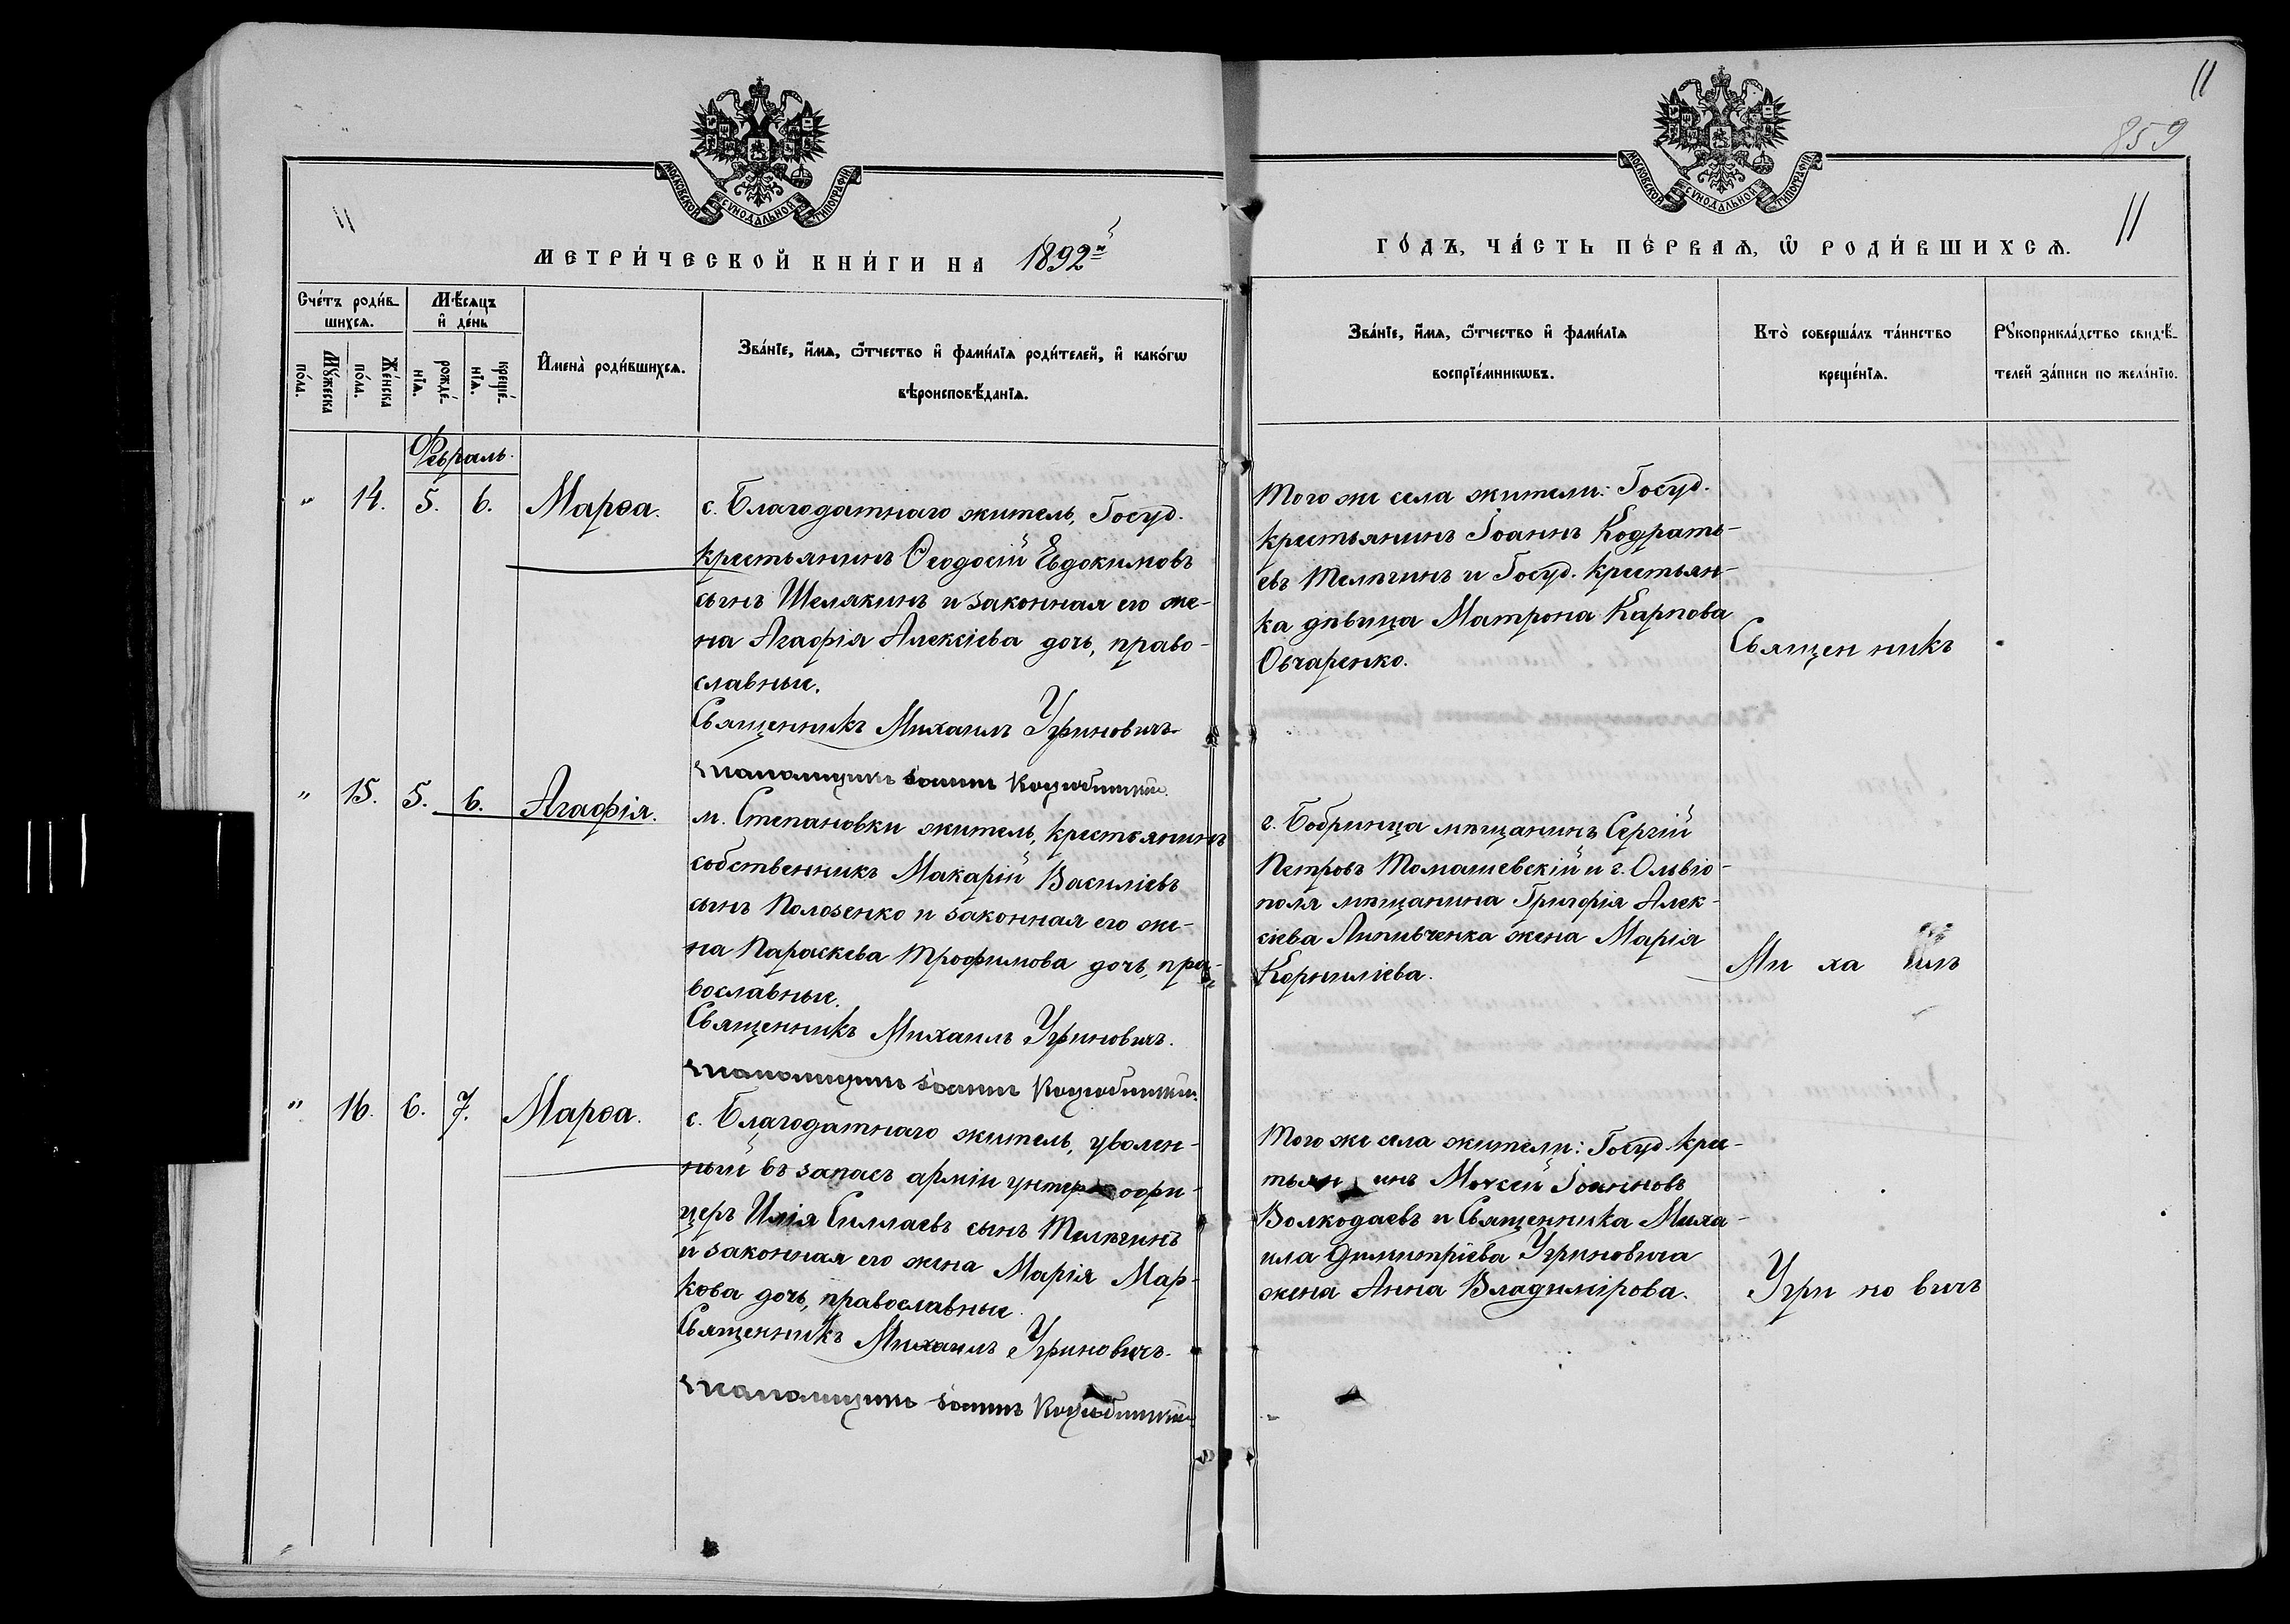 11
859
МОСКОВСКОЙ СѴНОДАЛЬНОЙ ТИПОГРАФІИ
МОСКОВСКОЙ СѴНОДАЛЬНОЙ ТИПОГРАФІИ
11
МЕТРИ́ЧЕСКОЙ КНИ́ГИ НА 1892й
ГО́ДЪ, ЧА́СТЬ ПЕ́РВАѦ, Ѡ РОДИ́ВШИХСѦ.
11
Сче́тъ роди́в-
шихсѧ.
Мꙋ́жеска
по́ла.
Же́нска
по́ла.
Мѣ́сѧцъ
и҆ де́нь
рожде́-
нїѧ.
креще́-
нїѧ.
И҆мена̀ роди́вшихсѧ.
Зва́нїе, и҆́мѧ, ѻ҆́тчество и҆ фами́лїѧ роди́телей, и҆ како́гѡ
вѣроисповѣ́данїѧ.
Зва́нїе, и҆́мѧ, ѻ҆́тчество и҆ фами́лїѧ
воспрїе́мникѡвъ.
Кто̀ соверша́лъ та́инство
креще́нїѧ.
Рꙋкоприкла́дство свидѣ́-
телей за́писи по жела́нїю.
Февраль.
" 14. 5. 6. Марѳа.
с. Благодатнаго житель, Госуд.
крестьянинъ Ѳеодосій Евдокимовъ
сынъ Шелякинъ и законная его же-
на Агафія Алексіева дочь, право-
славные.
Священникъ Михаилъ Угриновичъ.
Псаломщикъ Іоаннъ Коцюбинскій.
Того же села жители: Госуд.
крестьянинъ Іоаннъ Кодрать-
евъ Телѣгинъ и Госуд. крестьян-
ка дѣвица Матрона Карпова
Овчаренко.
Священникъ
" 15. 5. 6. Агафія.
м. Степановки житель, крестьянинъ
собственникъ Макарій Василіевъ
сынъ Полозенко и законная его же-
на Параскева Трофимова дочь, пра-
вославные.
Священникъ Михаилъ Угриновичъ.
Псаломщикъ Іоаннъ Коцюбинскій.
г. Бобринца мѣщанинъ Сергій
Петровъ Томашевскій и г. Ольвіо-
поля мѣщанина Григорія Алек-
сіева Липивченка жена Марія
Корниліева.
Михаилъ
" 16. 6. 7. Марѳа.
с. Благодатнаго житель, уволен-
ный въ запасъ арміи унтеръ офи-
церъ Илія Силлаевъ сынъ Телѣгинъ
и законная его жена Марія Мар-
кова дочь, православные.
Священникъ Михаилъ Угриновичъ.
Псаломщикъ Іоаннъ Коцюбинскій.
Того же села жители: Госуд. крес-
тьянинъ Моѵсей Іоанновъ
Волкодаевъ и Священника Миха-
ила Димитріева Угриновича
жена Анна Владимірова.
Угриновичъ